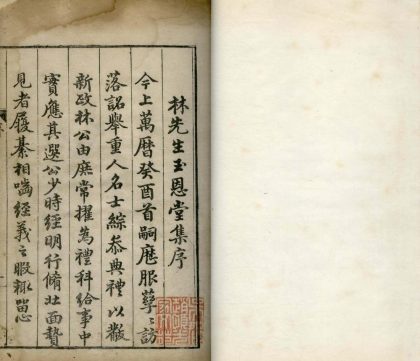 林先生玉恩堂集序
今上萬曆癸酉首嗣厯服孳〻訪
落詔舉重人名士綜叅典禮以黻
新政林公由庶常擢為禮科給事中
實應其選公少時經明行脩北面贄
見者履綦相嚙經義之暇輙留心